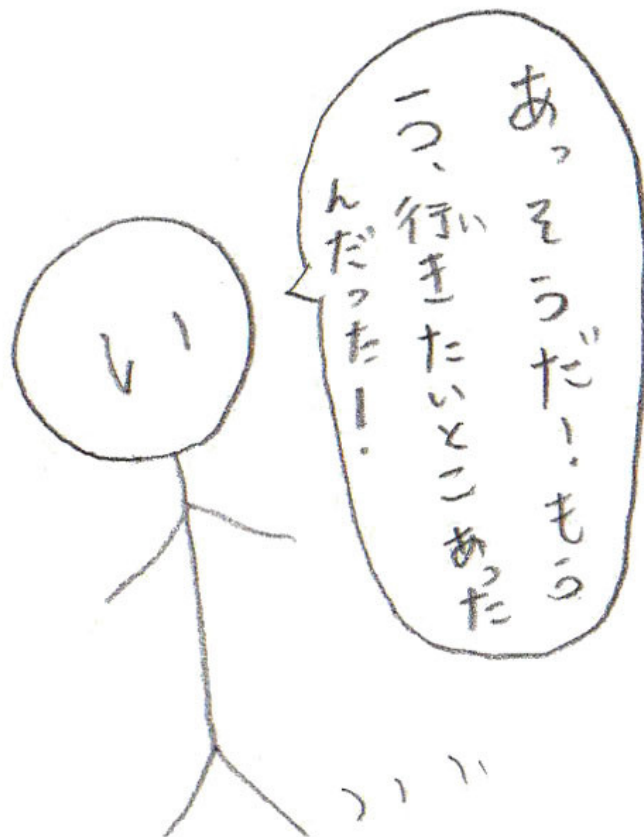 あっそうだ!もう
一つ、行きたいとこあった
んだった!
い